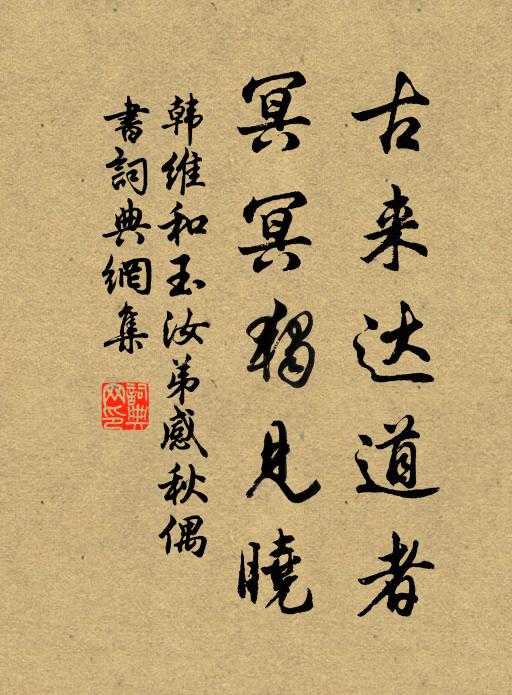 古来达道者
冥冥独见曉
韩维和玉汝弟感秋偶
書詞典網集
詞典网印